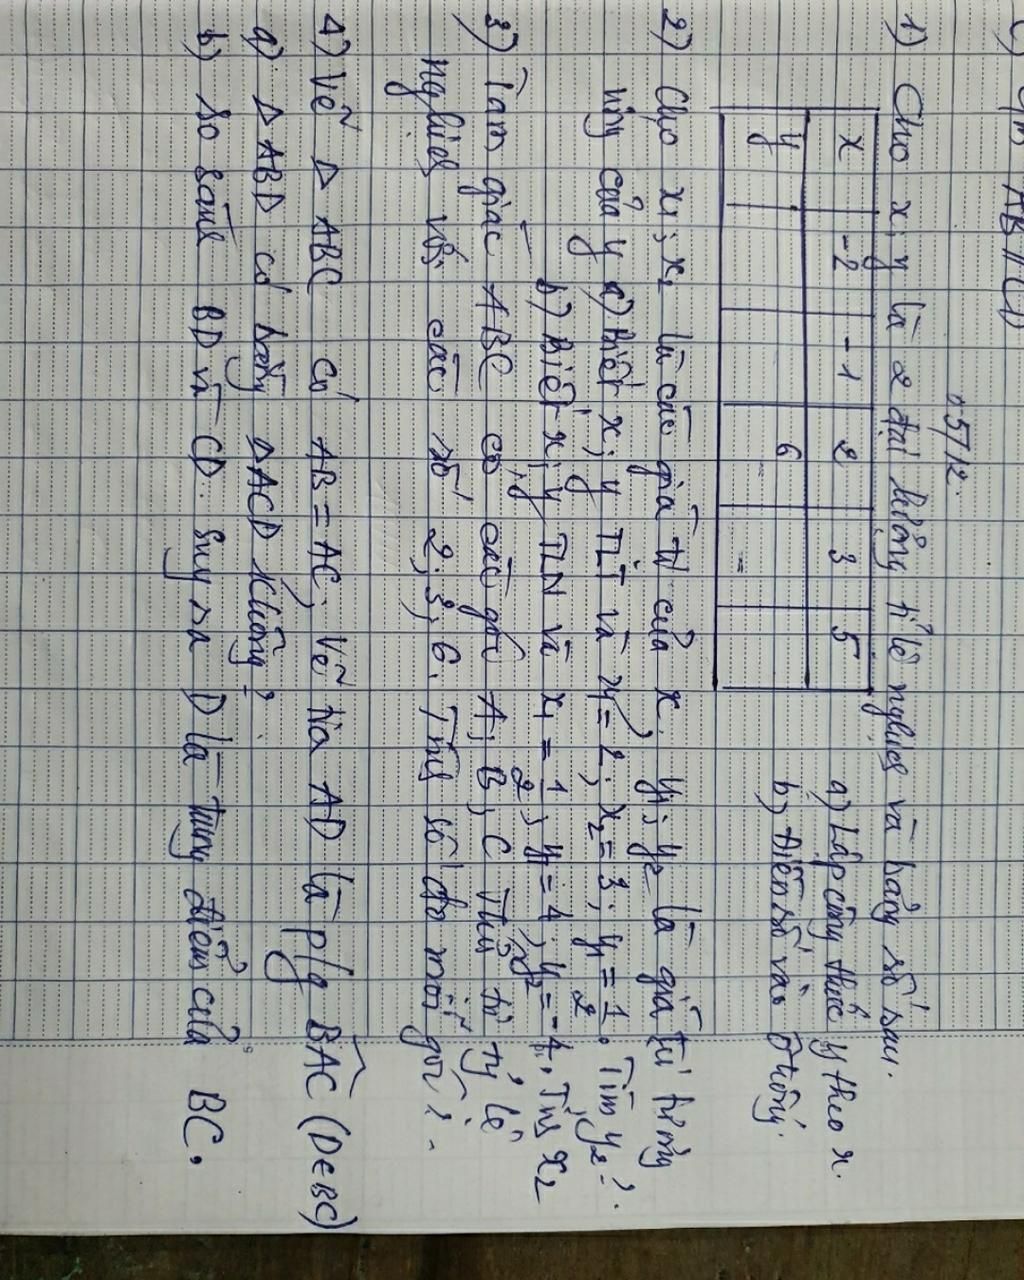 AB // CD
05/12.
1) Cho x; y là 2 đại lượng tỉ lệ nghịch và bảng số sau.
x -2 -1 2 3 5
y 6
a) Lập công thức y theo x.
b) Điền số vào ô trống.
2) Cho x₁; x₂ là các giá trị của x. y₁; y₂ là giá trị tương
ứng của y a) Biết x; y TLT và x₁ = 2; x₂ = 3; y₁ = 1/2. Tìm y₂?
b) Biết x; y TLN và x₁ = 1/2; y₁ = 4; y₂ = -4. Tính x₂
3) Tam giác ABC có các góc A; B; C Thứ tự tỷ lệ
nghịch với các số 2; 3; 6. Tính số đo mỗi góc?
4) Vẽ Δ ABC có AB = AC; Vẽ tia AD là p/g BAC (D ∈ BC)
a) Δ ABD có bằng Δ ACD không?
b) So sánh BD và CD. Suy ra D là trung điểm của BC.